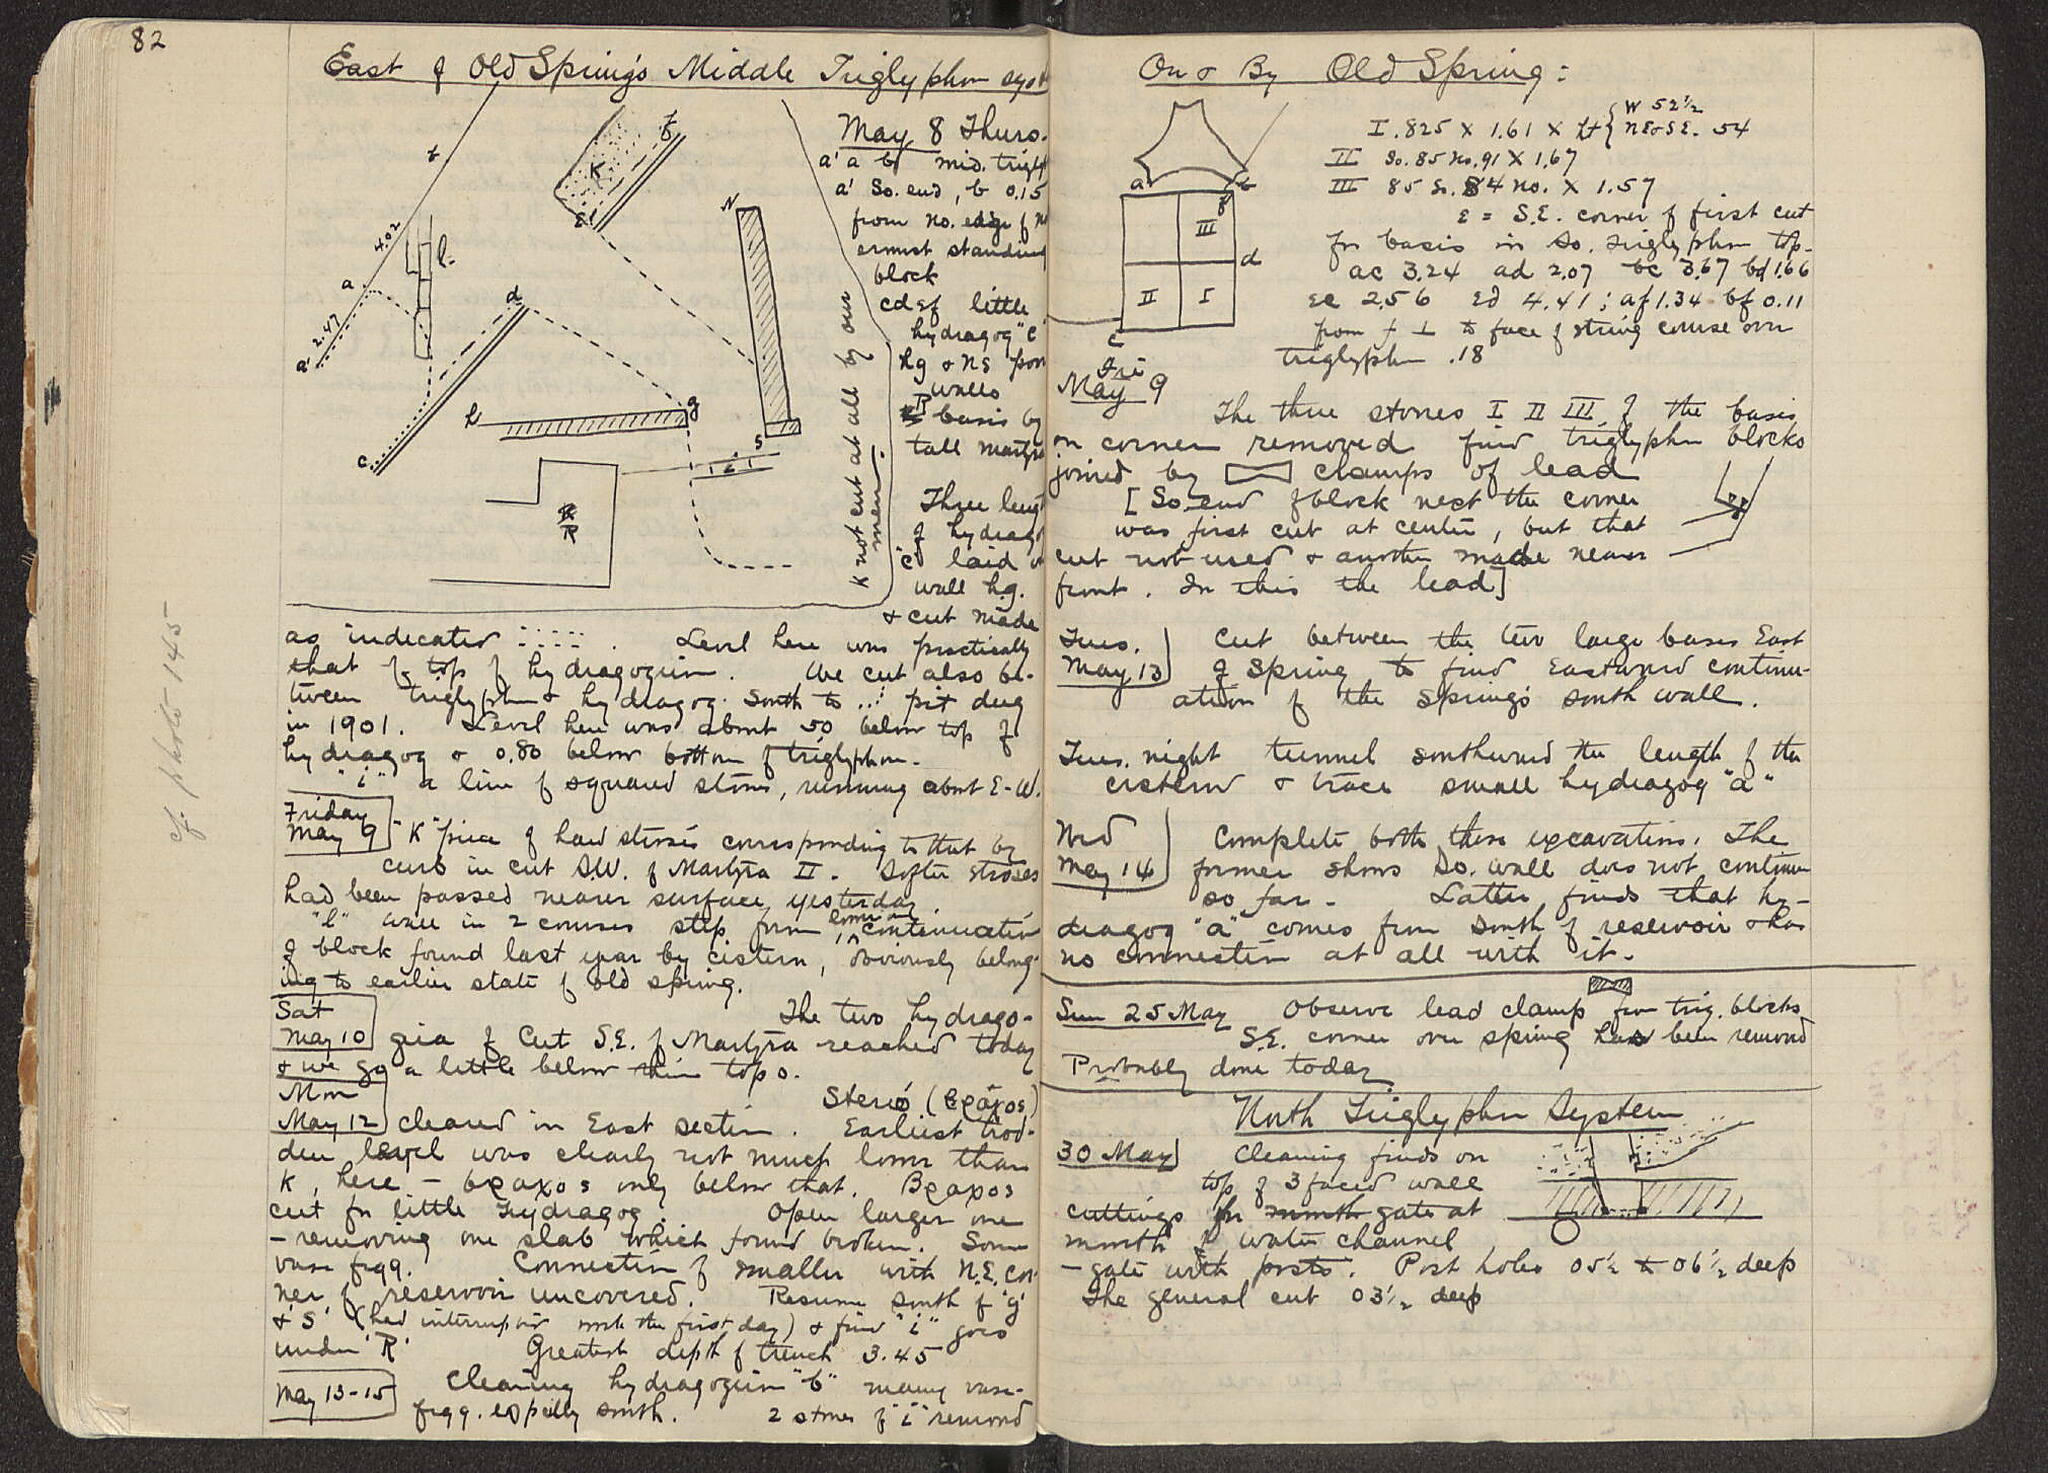 82
East of Old Spring's Middle Triglyphon syst
May 8 Thurs.
a' a b mid. trigly
a' So. end, b 0.15
from no. edge of n
ermost standing
block
cdef little
hydragog "c"
hg & NS poor
walls
R basis by
tall martyra
Three lengt
of hydrago
"c" laid
wall hg.
& cut made
K not cut at all by our
men.
t
4.02
a
2.47
a'
l
K
f
E
N
d
h
g
S
c
i
R
as indicated ::::: . Level here was practically
that of top of hydragogeion. We cut also be-
tween triglyphon & hydragog. South to ...: pit dug
in 1901. Level here was about 50 below top of
hydragog & 0.80 below bottom of triglyphon.
"i" a line of squared stones, running about E-W.
Friday
May 9 "K" piece of hard stereo corresponding to that by
curb in cut S.W. of Martyra II. Softer stereos
had been passed nearer surface yesterday.
"l" wall in 2 courses step form continuation
of block found last year by cistern, obviously belong-
ing to earlier state of old spring.
Sat
May 10 The two hydrago-
geia of Cut S.E. of Martyra reached today
& we go a little below their tops.
Mon
May 12 Stereo (βραχος)
cleared in East section. Earliest trod-
den level was clearly not much lower than
K, here – βραχος only below that. Βραχος
cut for little hydragog. Open larger one
– removing one slab which found broken. Some
vase frgg. Connection of smaller with N.E. cor-
ner of reservoir uncovered. Resume south of 'g'
& 'S' (had interrupted work the first day) & find "i" goes
under 'R' Greatest depth of trench 3.45
May 13-15 Cleaning hydragogeion "b" many vase-
frgg. espcilly south. 2 stones of "i" removed
cf. photo 145
On & By Old Spring:
a
b
f
III
d
II
I
c
I .825 × 1.61 × ht { W 52½
NE&SE. 54
II So. 85 no. 91 × 1.67
III 85 So. 84 no. × 1.57
ε = S.E. corner of first cut
for basis in So. triglyphon top.
ac 3.24 ad 2.07 bc 3.67 bd 1.66
εc 2.56 εd 4.41; af 1.34 bf 0.11
from f ⊥ to face of string course over
triglyphon .18
Fri
May 9
The three stones I II III of the basis
on corner removed find triglyphon blocks
joined by clamps of lead
[So. end of block next the corner
was first cut at center, but that
cut not used & another made nearer
front. In this the lead]
Tues.
May 13 Cut between the two large bases East
of Spring to find Eastward continu-
ation of the Spring's south wall.
Tues. night tunnel southward the length of the
cistern & trace small hydragog "a"
Wed
May 14 Complete both these excavations. The
former shows So. wall does not continue
so far. Latter finds that hy-
dragog "a" comes from South of reservoir & has
no connection at all with it.
Sun 25 May Observe lead clamp from trig. blocks
S.E. corner over spring has been removed
Probably done today
North Triglyphon System
30 May Cleaning finds on
top of 3 faced wall
cuttings for gate at
mouth of water channel
– gate with posts. Post holes 05½ to 06½ deep
The general cut 03½ deep